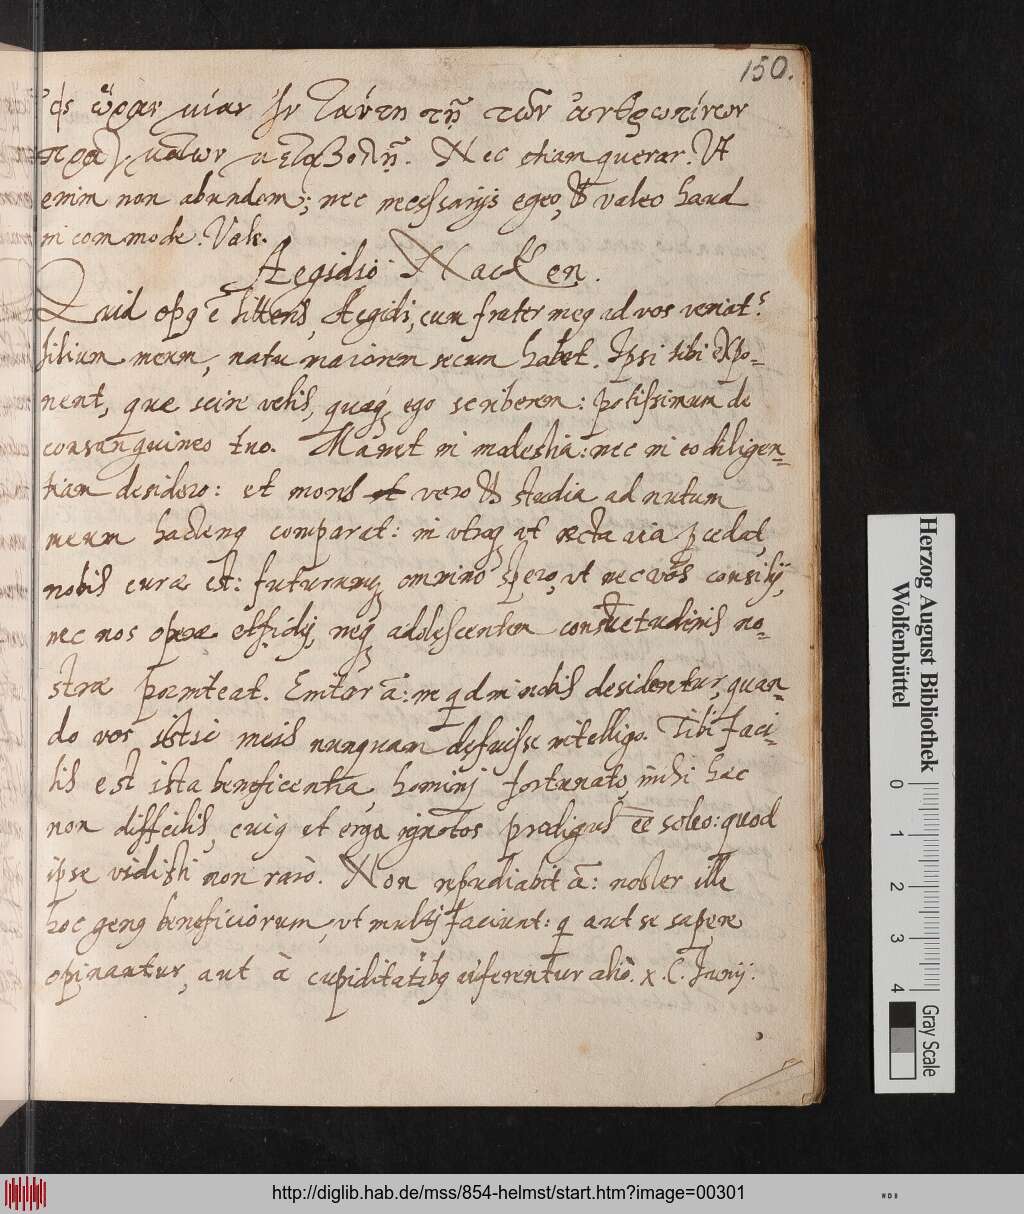 150.
ὥραν μίαν ἐν ταύτῃ τῇ τῶν ἀνθρωπίνων
πραγμάτων μεταβολῇ. Nec etiam querar. Vt
enim non abundem; nec necessarijs egeo, & valeo haud
incommode. Vale.
Aegidio Nacken.
Quid opꝰ ē litteris, Aegidi, cum frater meꝰ ad vos veniat?
filium meum, natu maiorem secum habet. Ipsi tibi expo-
nent, quæ scire velis, quæqꝫ ego scriberem: potissimum de
consanguineo tuo. Manet in modestia: nec in eo diligen-
tiam desidero: et mores vero & studia ad nutum
meum hactenꝰ comparat: in vtroqꝫ vt recta via pcedat,
nobis curæ est: futurumqꝫ omnino spero, vt nec vos consilij,
nec nos operæ et fidij, neqꝫ adolescentem consuetudinis no-
stræ poeniteat. Enitar a: ne qd in nobis desideretur, quan-
do vos istsi meis nunquam defuisse intelligo. Tibi faci-
lis est ista beneficentia, homini fortunato, mihi hæc
non difficilis, cuiꝰ et erga ignotos prodigus eē soleo: quod
ipse vidisti non raro. Non repudiabit a: nobler ille
hoc genꝰ beneficiorum, vt multi faciunt: q aut se sapere
opinantur, aut à cupiditatibꝰ auferentur alio. x. C. Junij.
Herzog August Bibliothek
Wolfenbüttel
0 1 2 3 4
Gray Scale
http://diglib.hab.de/mss/854-helmst/start.htm?image=00301